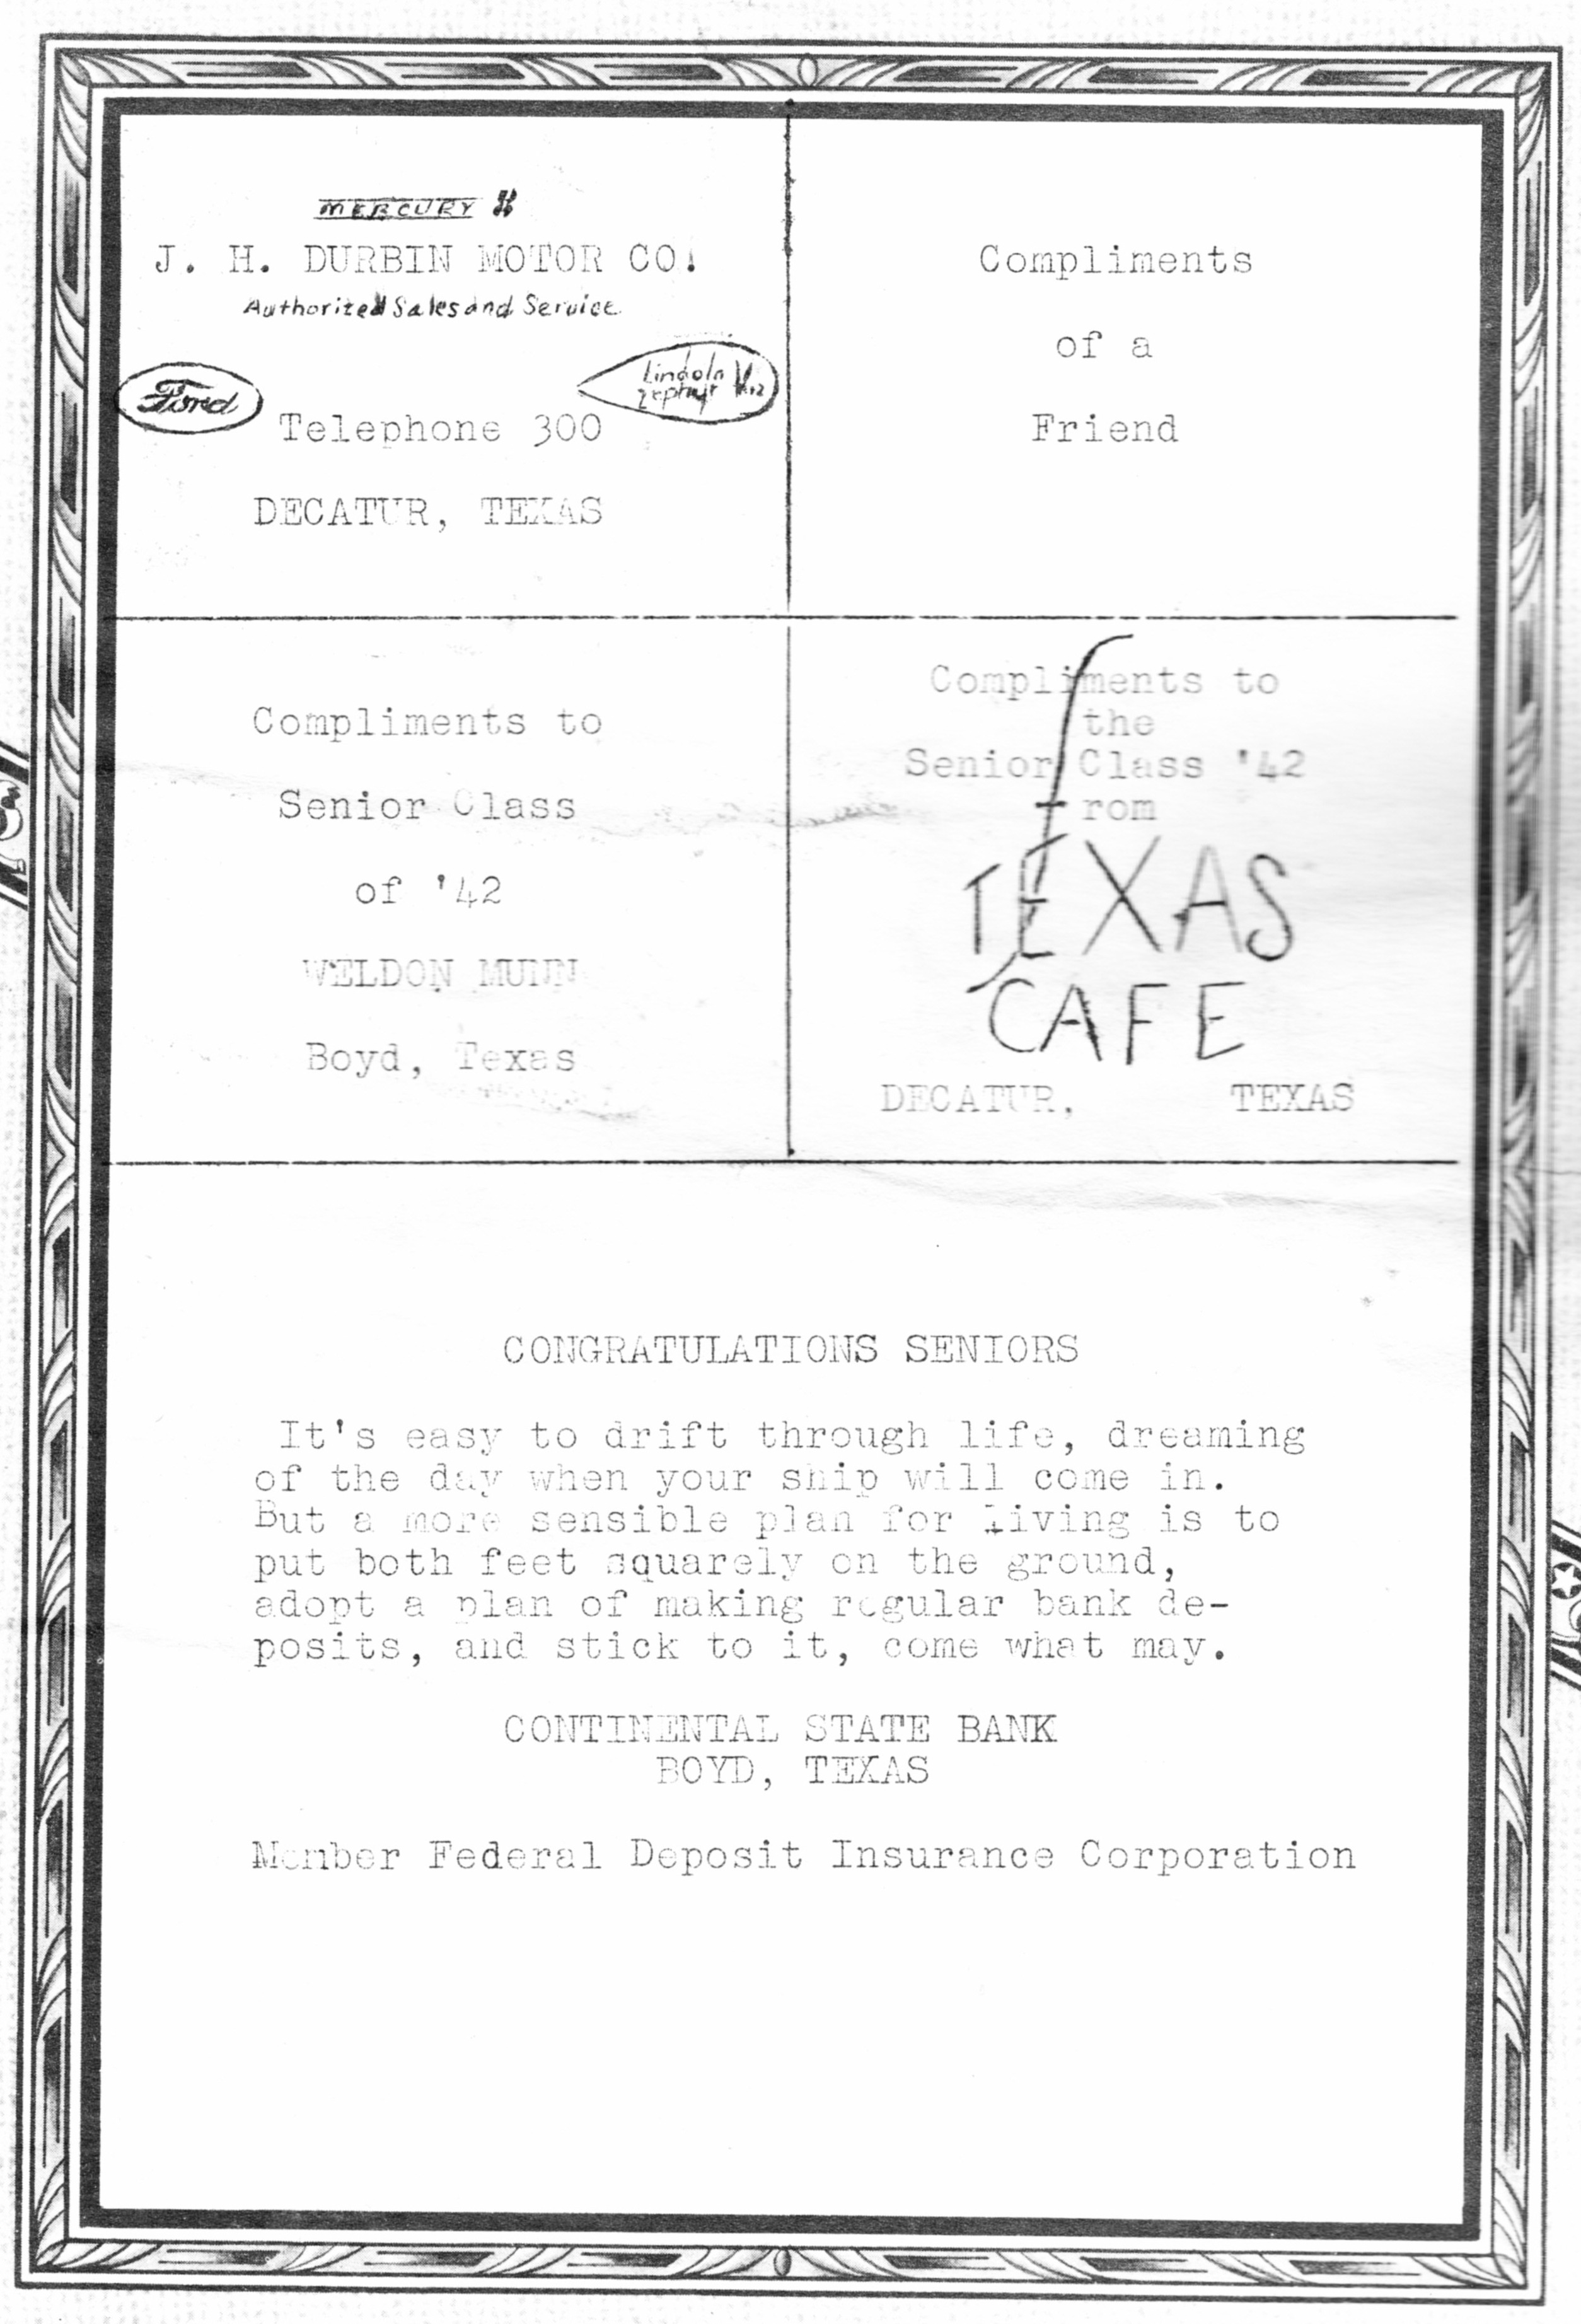 MERCURY 8
J. H. DURBIN MOTOR CO.
Authorized Sales and Service
Ford
Lincoln
Zephyr V.12
Telephone 300
DECATUR, TEXAS
Compliments
of a
Friend
Compliments to
Senior Class
of '42
WELDON MUNN
Boyd, Texas
Compliments to
the
Senior Class '42
from
TEXAS
CAFE
DECATUR, TEXAS
CONGRATULATIONS SENIORS
It's easy to drift through life, dreaming
of the day when your ship will come in.
But a more sensible plan for living is to
put both feet squarely on the ground,
adopt a plan of making regular bank de-
posits, and stick to it, come what may.
CONTINENTAL STATE BANK
BOYD, TEXAS
Member Federal Deposit Insurance Corporation